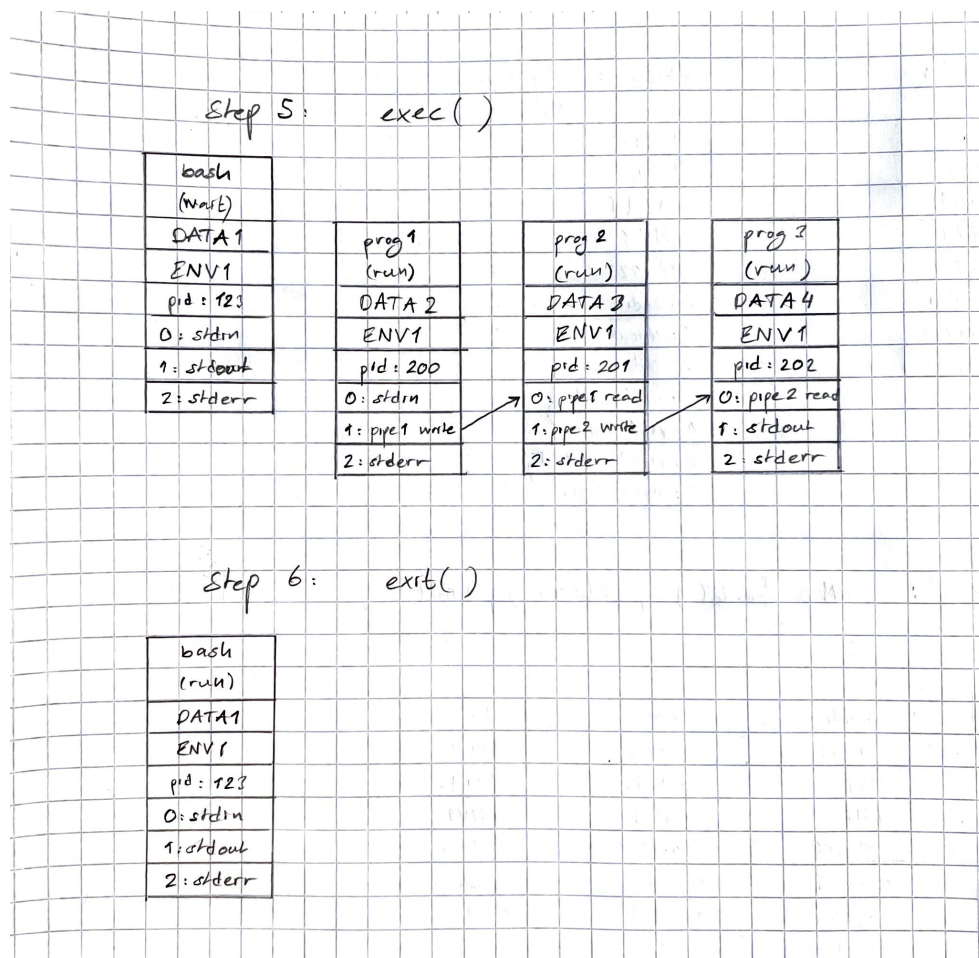 Step 5: exec()
bash
(wait)
DATA1
ENV1
pid: 123
0: stdin
1: stdout
2: stderr
prog 1
(run)
DATA2
ENV1
pid: 200
0: stdin
1: pipe1 write
2: stderr
prog 2
(run)
DATA3
ENV1
pid: 201
0: pipe1 read
1: pipe2 write
2: stderr
prog 3
(run)
DATA4
ENV1
pid: 202
0: pipe2 read
1: stdout
2: stderr
Step 6: exit()
bash
(run)
DATA1
ENV1
pid: 123
0: stdin
1: stdout
2: stderr